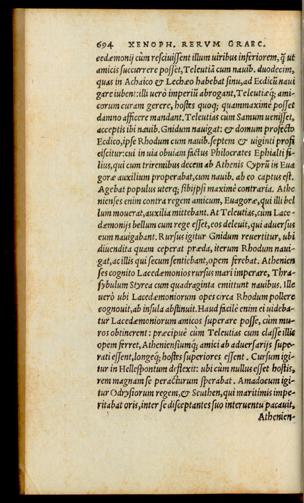 694 XENOPH. RERVM GRAEC.
cedæmonij cùm resciuissent illum uiribus inferiorem, q̃ ut
amicis succurrere posset, Teleutiã cum nauib. duodecim,
quas in Achaico & Lechæo habebat sinu, ad Ecdicũ naui
gare iubent: illi uerò imperiũ abrogant, Teleutiæq́; ami-
corum curam gerere, hostes quoq; quammaximè posset
damno afficere mandant. Teleutias cum Samum uenisset,
acceptis ibi nauib. Gnidum nauigat: & domum profecto
Ecdico, ipse Rhodum cum nauib. septem & uiginti profi
ciscitur: cui in uia obuiam factus Philocrates Ephialti fi-
lius, qui cum triremibus decem ab Athenis Cyprũ in Eua
goræ auxilium properabat, cum nauib. ab eo captus est.
Agebat populus uterq; sibijpsi maximè contraria. Athe
nienses enim contra regem amicum, Euagoræ, qui illi bel
lum mouerat, auxilia mittebant. At Teleutias, cum Lace-
dæmonijs bellum cum rege esset, eos deleuit, qui aduersus
eum nauigabant. Rursus igitur Gnidum reuertitur, ubi
diuendita quam ceperat præda, iterum Rhodum naui-
gat, ac illis qui secum sentiebant, opem ferebat. Athenien
ses cognito Lacedæmonios rursus mari imperare, Thra-
sybulum Styrea cum quadraginta emittunt nauibus. Ille
uerò ubi Lacedæmoniorum opes circa Rhodum pollere
cognouit, ab insula abstinuit. Haud facilè enim ei uideba-
tur Lacedæmoniorum amicos superare posse, cùm mu-
ros obtinerent: præcipuè cùm Teleutias cum classe illis
opem ferret, Atheniensiumq́; amici ab aduersarijs supe-
rati essent, longeq́; hostes superiores essent. Cursum igi-
tur in Hellespontum deflexit: ubi cùm nullus esset hostis,
rem magnam se peracturum sperabat. Amadocum igi-
tur Odrysiorum regem, & Seuthen, qui maritimis impe-
ritabat oris, inter se disceptantes suo interuentu pacauit,
Athenien-